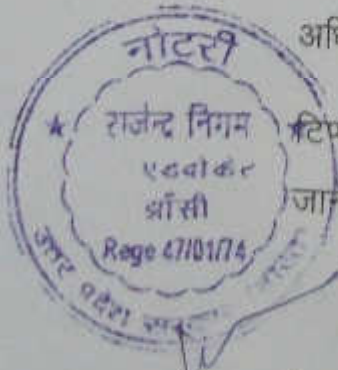 नोटरी
राजेन्द्र निगम
एडवोकेट
झाँसी
Rege 47/01/74
उत्तर प्रदेश
अधि
टिप
जान